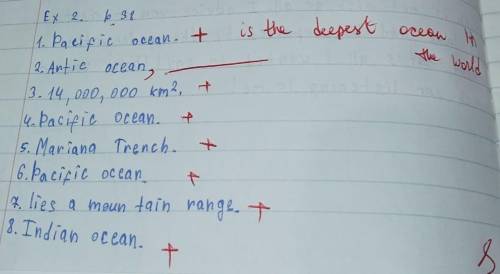 Ex 2. p. 31
1. Pacific ocean. + is the deepest ocean in
2. Antic ocean, the world
3. 14,000,000 km². +
4. Pacific ocean. +
5. Mariana Trench. +
6. Pacific ocean. +
7. lies a moun tain range. +
8. Indian ocean. +